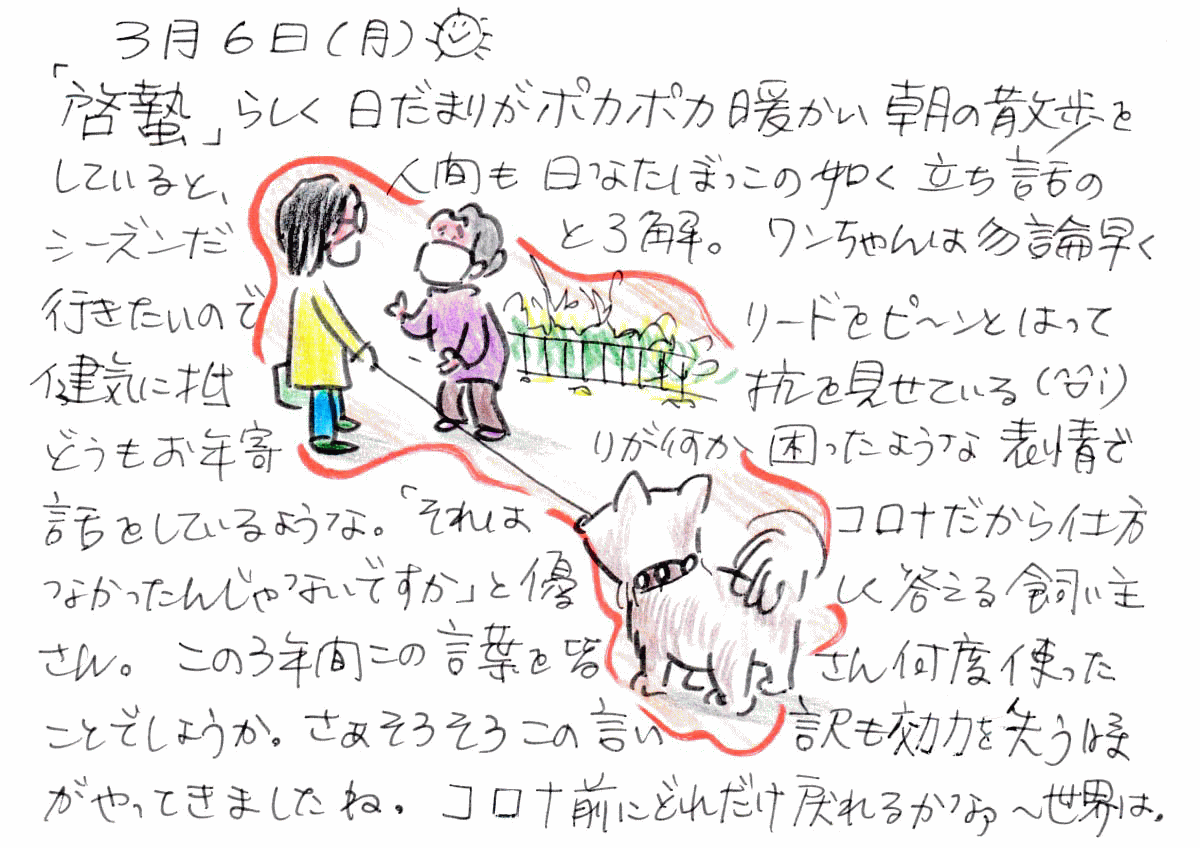 3月6日(月)
「啓蟄」らしく日だまりがポカポカ暖かい朝の散歩を
していると、人間も日なたぼっこの如く立ち話の
シーズンだところ解。ワンちゃんは勿論早く
行きたいのでリードをピ〜ンとはって
健気に抵抗を見せている(^^;)
どうもお年寄りが何か困ったような表情で
話をしているような。「それはコロナだから仕方
なかったんじゃないですか」と優しく答える飼い主
さん。この3年間この言葉を皆さん何度使った
ことでしょうか。さぁそろそろこの言い訳も効力を失う候
がやってきましたね。コロナ前にどれだけ戻れるかなぁ〜世界は。